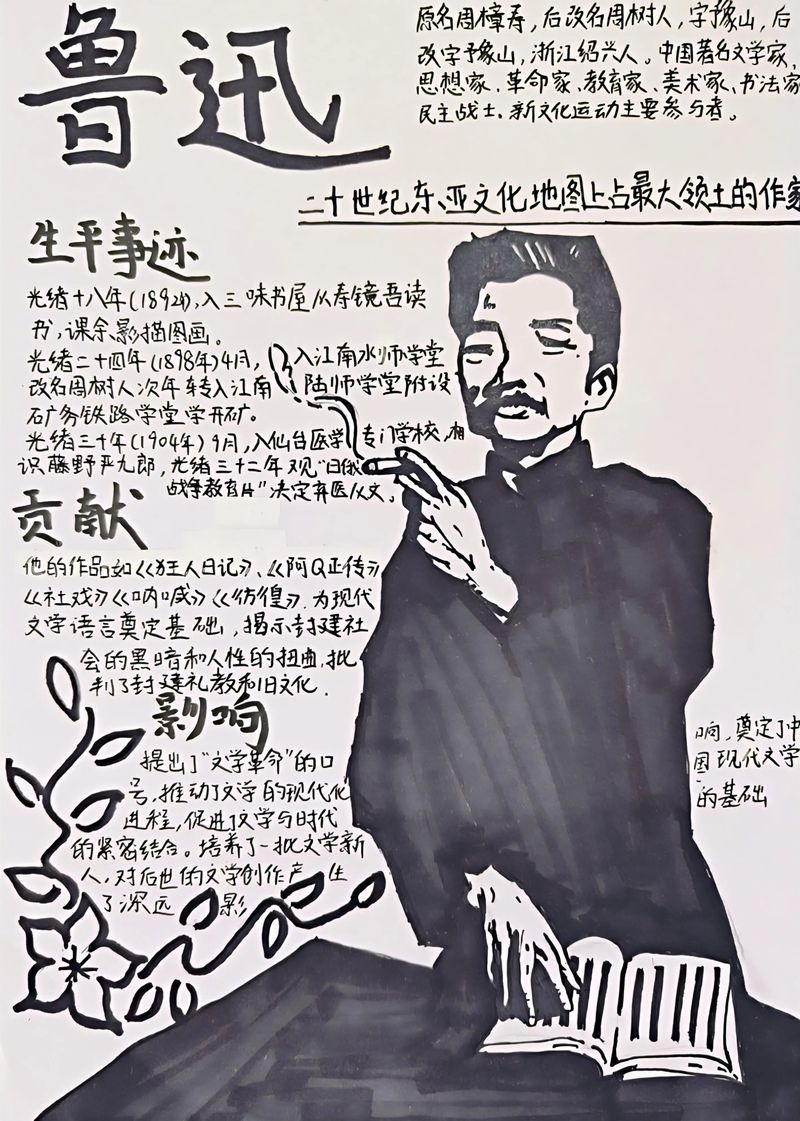 鲁迅
原名周樟寿，后改名周树人，字豫山，后
改字予象山，浙江绍兴人。中国著名文学家、
思想家、革命家、教育家、美术家、书法家
民主战士。新文化运动主要参与者。
二十世纪东、亚文化地图上占最大领土的作家
生平事迹
光绪十八年(1892)，入三味书屋从寿镜吾读
书，课余影描图画。
光绪二十四年(1898年)4月，入江南水师学堂
改名周树人次年转入江南陆师学堂附设
矿务铁路学堂学开矿。
光绪三十年(1904年)9月，入仙台医学专门学校，相
识藤野严九郎，光绪三十二年观“日俄
战争教育片”决定弃医从文。
贡献
他的作品如《狂人日记》、《阿Q正传》
《社戏》《呐喊》《彷徨》.为现代
文学语言奠定基础，揭示封建社
会的黑暗和人性的扭曲，批
判了封建礼教和旧文化.
影响
提出了“文学革命”的口
号，推动了文学的现代化
进程，促进了文学与时代
的紧密结合。培养了一批文学新
人，对后世的文学创作产生
了深远影
响，奠定了中
国现代文学
的基础